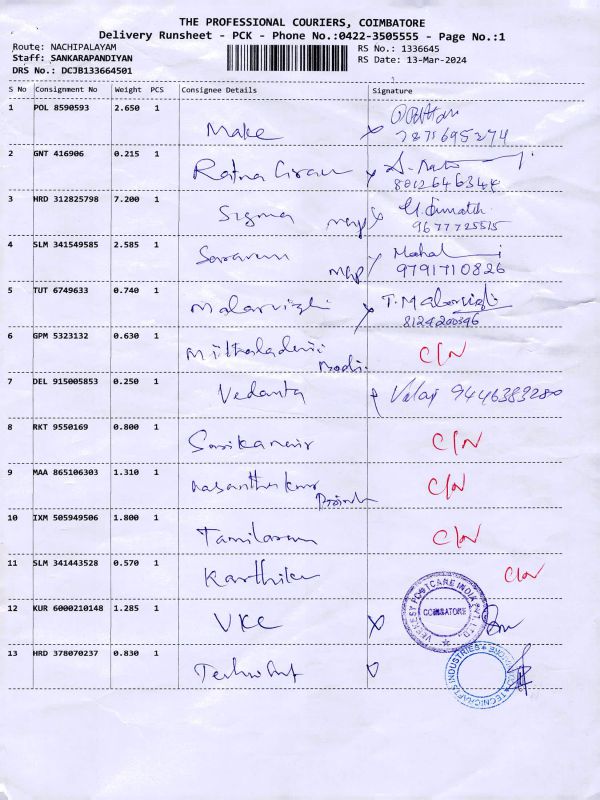 THE PROFESSIONAL COURIERS, COIMBATORE
Delivery Runsheet - PCK - Phone No.:0422-3505555 - Page No.:1
Route: NACHIPALAYAM
RS No.: 1336645
Staff: SANKARAPANDIYAN
RS Date: 13-Mar-2024
DRS No.: DCJB133664501
S No Consignment No Weight PCS Consignee Details Signature
1 POL 8590593 2.650 1
Make
2 GNT 416906 0.215 1
Ratna
8012646344
3 HRD 312825798 7.200 1
Sigma
9677725515
4 SLM 341549585 2.585 1
Saravan
9791710826
5 TUT 6749633 0.740 1
Malarvizhi T. Malarvizhi
8124200596
6 GPM 5323132 0.630 1
C/N
7 DEL 915005853 0.250 1
Vedanta 9446383280
8 RKT 9550169 0.800 1
Sasikanair C/N
9 MAA 865106303 1.310 1
C/N
10 IXM 505949506 1.800 1
C/N
11 SLM 341443528 0.570 1
Karthika C/N
12 KUR 6000210148 1.285 1
VKC X
VEEKESY FOOTCARE INDIA PVT. LTD.
COIMBATORE
13 HRD 378070237 0.830 1
TECNICRAFTS INDUSTRIES